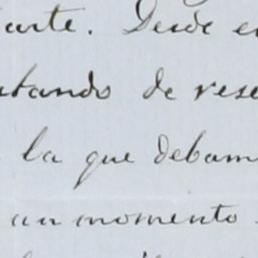 arte. Desde e
tando de rese
la que debam
un momento